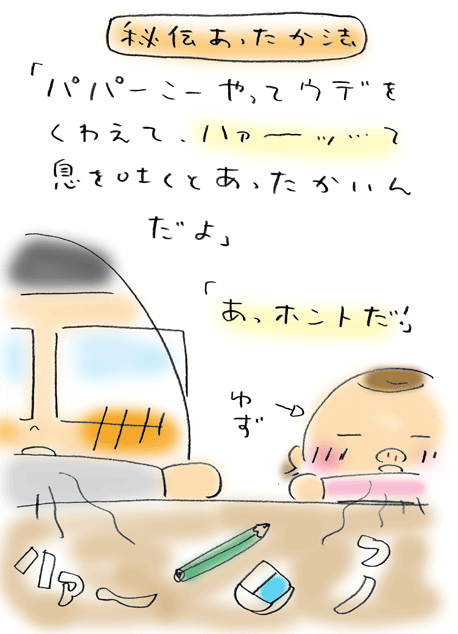 秘伝あったか法
「パパーこーやってウデを
くわえて、ハァーッ…て
息を吐くとあったかいん
だよ」
「あっホントだ!」
ゆず
ハァー
フー